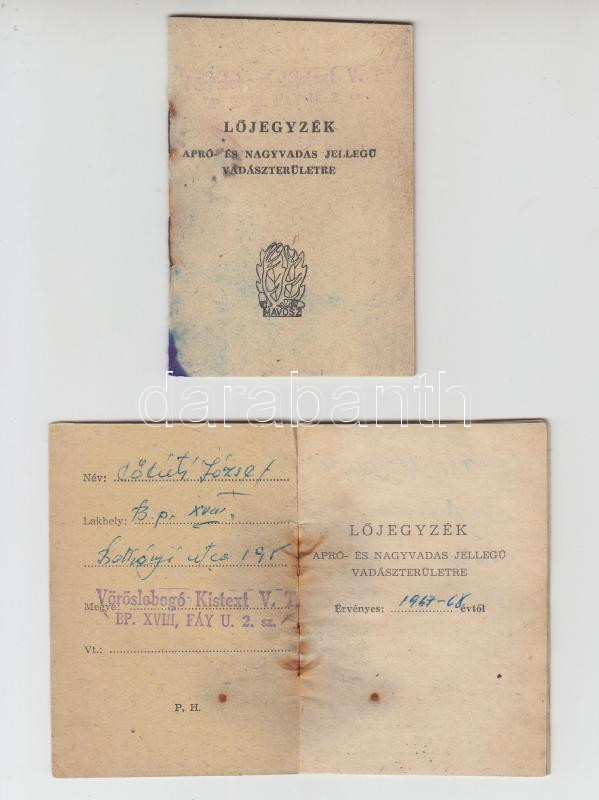 Vöröslobogó Kistext V.
FÁY U. 2. sz.
LŐJEGYZÉK
APRÓ- ÉS NAGYVADAS JELLEGŰ
VADÁSZTERÜLETRE
MAVOSZ
darabanth
Név: József
Lakhely: Bp. XVIII.
utca
Megye:
Vöröslobogó Kistext V. T
BP. XVIII, FÁY U. 2. sz.
Vt.:
P. H.
LŐJEGYZÉK
APRÓ- ÉS NAGYVADAS JELLEGŰ
VADÁSZTERÜLETRE
Érvényes: 1967-68 évtől